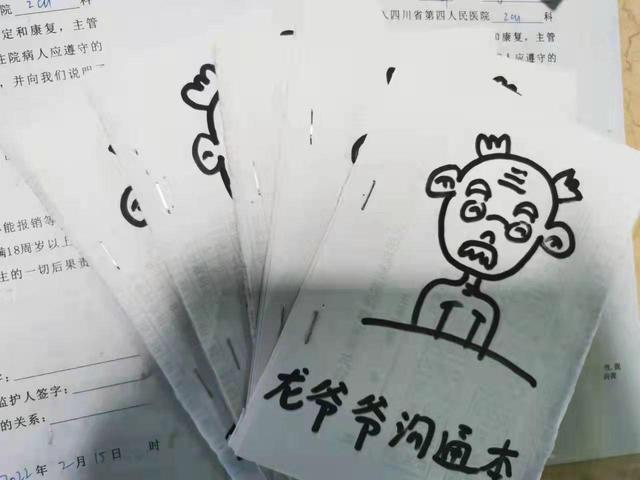 院 ICU 科
定和康复，主管
住院病人应遵守的
，并向我们说明了
四川省第四人民医院 ICU 科
和康复，主管
人应遵守的
能报销等
满18周岁以上
生的一切后果责
字：
监护人签字：
的关系：
2022年 2 月 15 日 时
龙爷爷沟通本